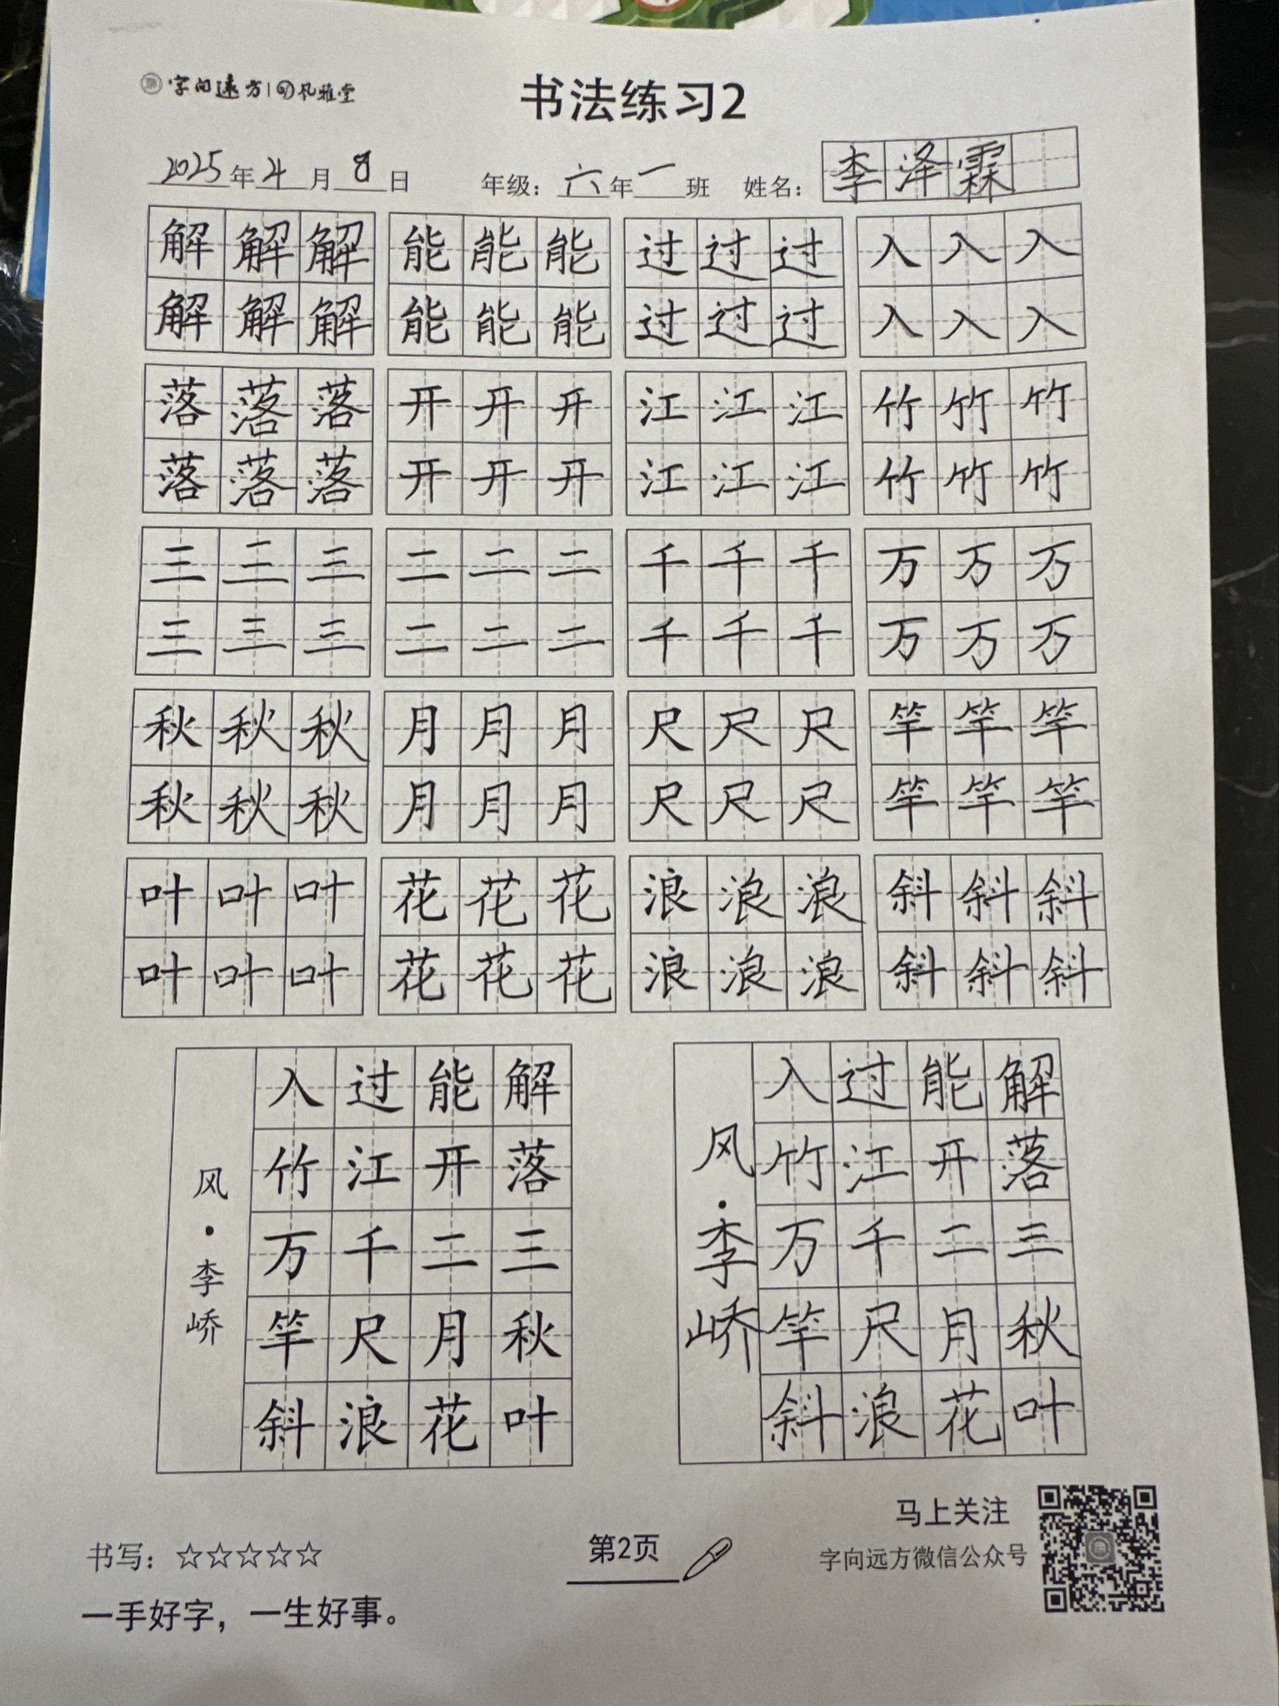 字向远方 | 风雅堂
书法练习2
2025年4月8日 年级：六年一班 姓名：李泽霖
解解解 能能能 过过过 入入入
解解解 能能能 过过过 入入入
落落落 开开开 江江江 竹竹竹
落落落 开开开 江江江 竹竹竹
三三三 二二二 千千千 万万万
三三三 二二二 千千千 万万万
秋秋秋 月月月 尺尺尺 竿竿竿
秋秋秋 月月月 尺尺尺 竿竿竿
叶叶叶 花花花 浪浪浪 斜斜斜
叶叶叶 花花花 浪浪浪 斜斜斜
解落三秋叶
能开二月花
过江千尺浪
入竹万竿斜
风·李峤
解落三秋叶
能开二月花
过江千尺浪
入竹万竿斜
风·李峤
书写：☆☆☆☆☆
一手好字，一生好事。
第2页
马上关注
字向远方微信公众号